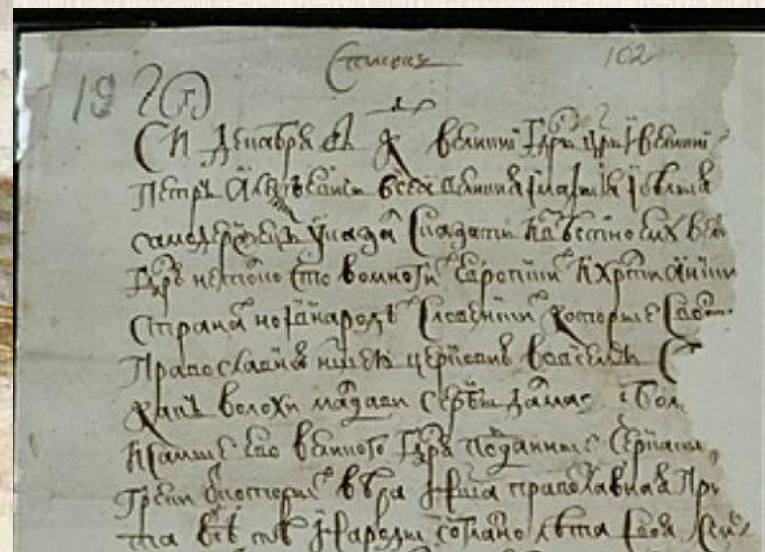 Список
102
19
декабря въ к великиї гдрь црь ї великиї
Петръ Алеѯѣевичь всеа великия ї малыя ї белыя
самодержецъ указал сказать известно ему вел
гдрю не токмо что во многих европских христианских
странах но ї в народех словенских которые с вост
православною нашею церковию во всем с
как волохи молдавы сербы далма бол
ї самые его великого гдря подданные черкасы
греки от которых вера наша православная при
та все те народы согласно лета свои счис